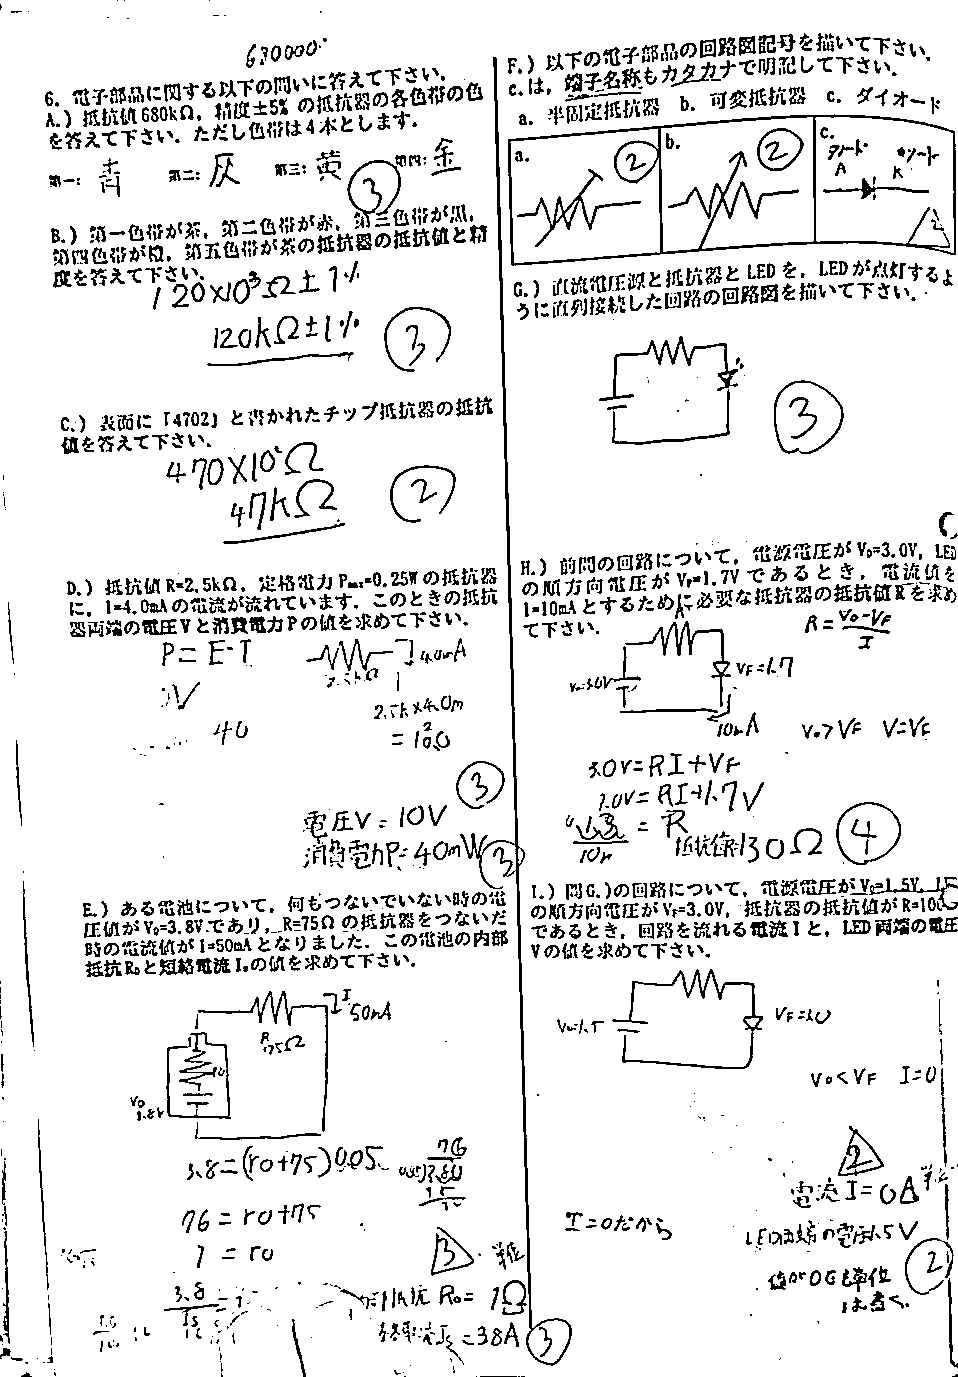 680000
6. 電子部品に関する以下の問いに答えて下さい.
A.) 抵抗値 680kΩ, 精度±5% の抵抗器の各色帯の色
を答えて下さい. ただし色帯は4本とします.
第一: 青 第二: 灰 第三: 黄 第四: 金
③
B.) 第一色帯が茶, 第二色帯が赤, 第三色帯が黒,
第四色帯が橙, 第五色帯が茶の抵抗器の抵抗値と精
度を答えて下さい.
120×10³Ω±1%
120kΩ±1%
③
C.) 表面に「4702」と書かれたチップ抵抗器の抵抗
値を答えて下さい.
470×10²Ω
47kΩ
②
D.) 抵抗値 R=2.5kΩ, 定格電力 Pmax=0.25W の抵抗器
に, I=4.0mA の電流が流れています. このときの抵抗
器両端の電圧 V と消費電力 P の値を求めて下さい.
P=E・I
4.0mA
2.5kΩ
2.5k×4.0m
40
③
電圧V=10V
消費電力P=40mW
③
E.) ある電池について, 何もつないでいない時の電
圧値が V₀=3.8V であり, R=75Ω の抵抗器をつないだ
時の電流値が I=50mA となりました. この電池の内部
抵抗 R₀ と短絡電流 Iₛ の値を求めて下さい.
I 50mA
R 75Ω
r0
V0 3.8V
3.8=(r0+75)0.05
76=r0+75
1=r0
3 単位
内部抵抗 R₀= 1Ω
短絡電流Is=3.8A
③
F.) 以下の電子部品の回路図記号を描いて下さい.
c.は, 端子名称もカタカナで明記して下さい.
a. 半固定抵抗器 b. 可変抵抗器 c. ダイオード
a. ② b. ② c. アノード A カソード K 2
G.) 直流電圧源と抵抗器と LED を, LED が点灯するよ
うに直列接続した回路の回路図を描いて下さい.
③
H.) 前問の回路について, 電源電圧が V₀=3.0V, LED
の順方向電圧が VF=1.7V であるとき, 電流値を
I=10mA とするために必要な抵抗器の抵抗値 R を求め
て下さい.
R=(V0-VF)/I
R
V0=3.0V
VF=1.7
10mA
V0>VF V=VF
3.0V=RI+VF
3.0V=RI+1.7V
1.3/10m = R
抵抗値=130Ω
④
I.) 問G.)の回路について, 電源電圧が V₀=1.5V, LED
の順方向電圧が VF=3.0V, 抵抗器の抵抗値が R=100Ω
であるとき, 回路を流れる電流 I と, LED 両端の電圧
V の値を求めて下さい.
V0=1.5
VF=3.0
V0<VF I=0
2
電流I=0A
I=0だから
LED両端の電圧1.5V
②
値が0でも単位
は書く.